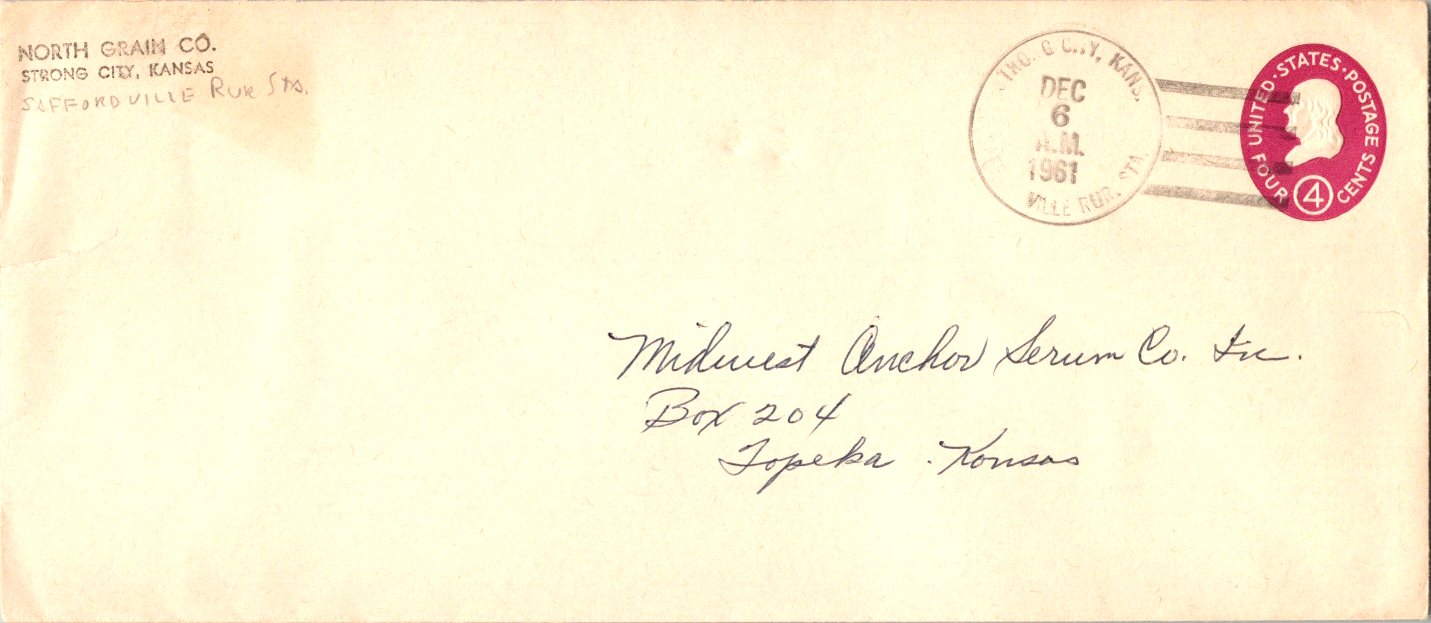 NORTH GRAIN CO.
STRONG CITY, KANSAS
SAFFORDVILLE RUR STA.
TRO G CITY, KANS.
DEC
6
A.M.
1961
VILLE RUR. STA
UNITED · STATES · POSTAGE
FOUR 4 CENTS
Midwest Anchor Serum Co. Inc.
Box 204
Topeka Kansas